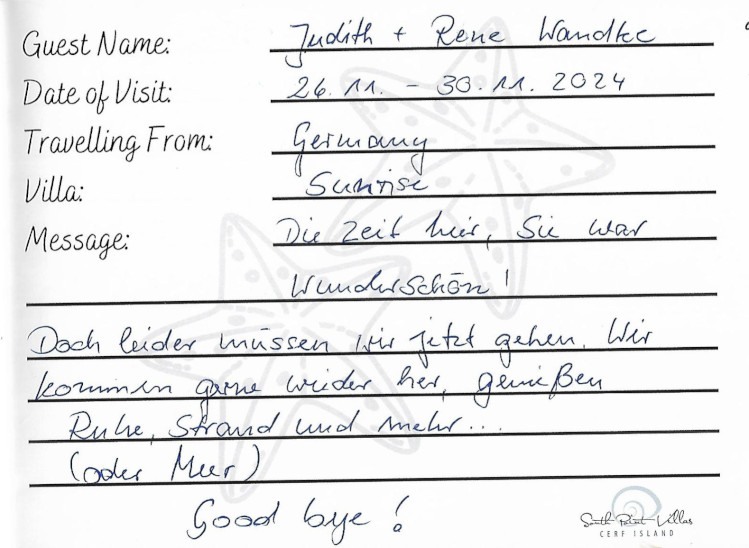 Guest Name: Judith + Rene Wandke
Date of Visit: 26.11. - 30.11. 2024
Travelling From: Germany
Villa: Sunrise
Message: Die Zeit hier, Sie war
Wunderschön!
Doch leider müssen wir jetzt gehen. Wir
kommen gerne wieder her, genießen
Ruhe, Strand und mehr...
(oder Meer)
Good bye!
South Point Villas
CERF ISLAND